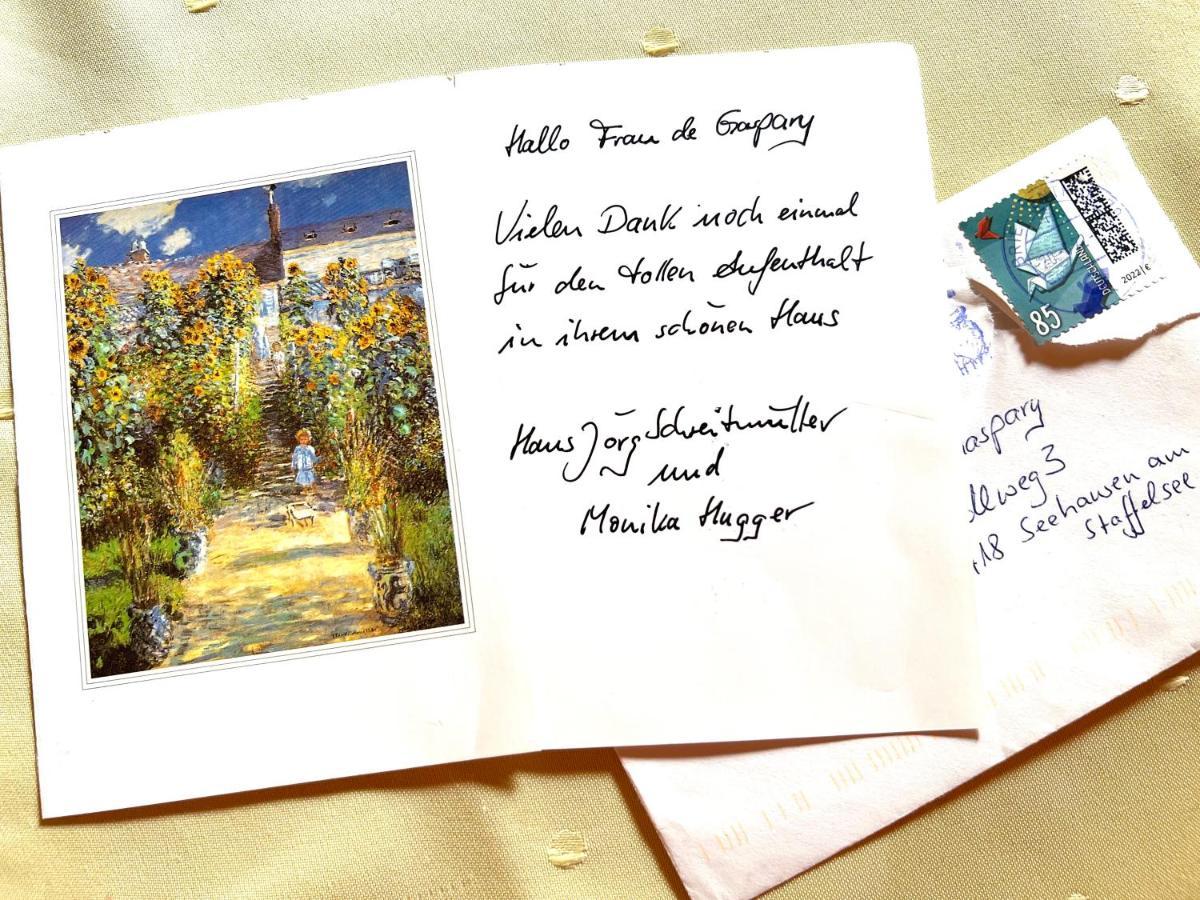 Hallo Frau de Gaspary
Vielen Dank noch einmal
für den tollen Aufenthalt
in ihrem schönen Haus
Hans Jörg Schreitmüller
und
Monika Hugger
DEUTSCHLAND
85
2022/€
aspary
lweg 3
418 Seehausen am
Staffelsee